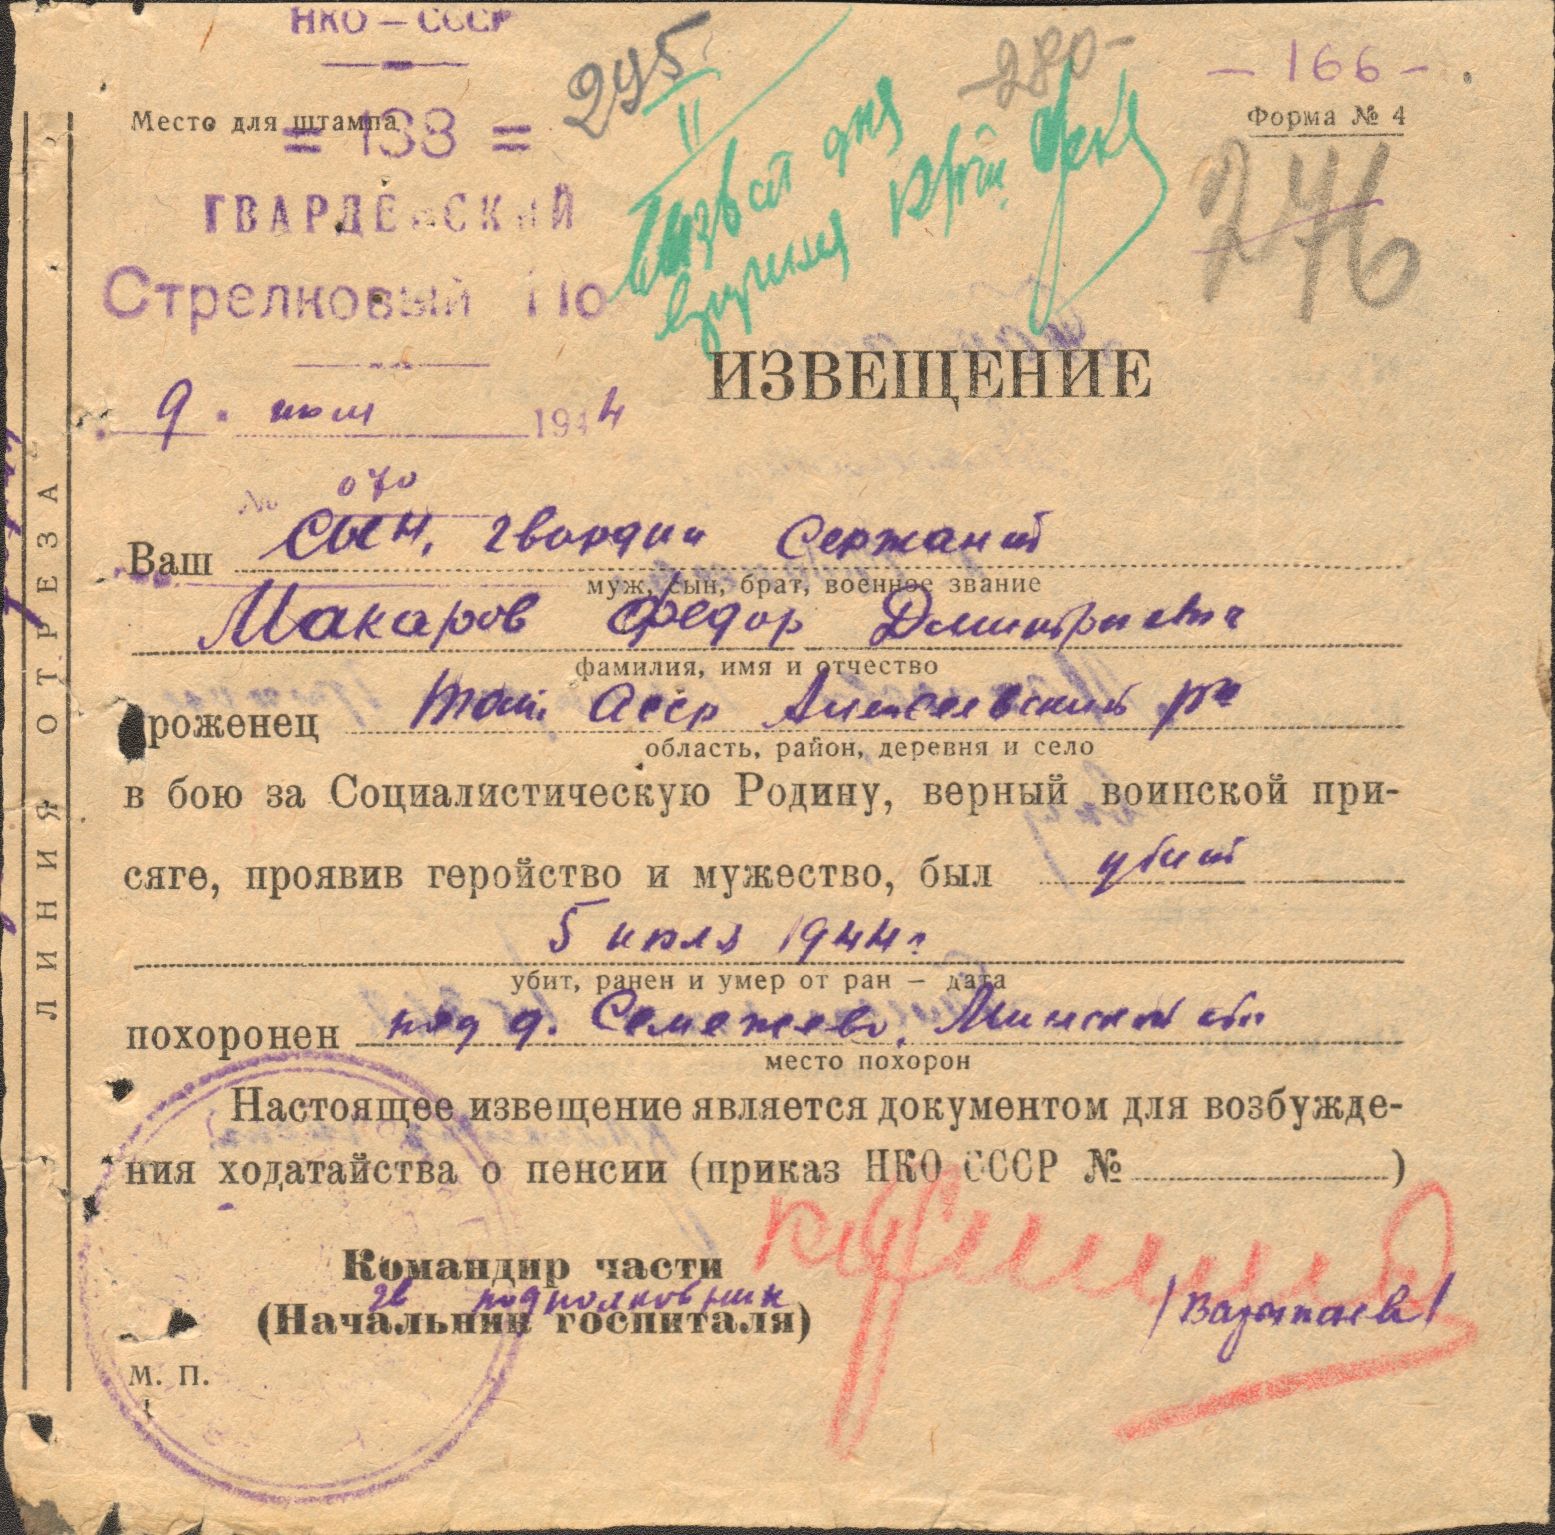 НКО – СССР
295
– 280 –
– 166 –
Место для штампа
= 133 =
Форма № 4
II
276
ГВАРДЕЙСКИЙ
Стрелковый По
ИЗВЕЩЕНИЕ
9. июля 1944
№ 070
Ваш сын, гвардии Сержант
муж, сын, брат, военное звание
Макаров Федор Дмитриевич
фамилия, имя и отчество
уроженец Тат. Асср Алексеевский р-н
область, район, деревня и село
в бою за Социалистическую Родину, верный воинской при-
сяге, проявив геройство и мужество, был убит
5 июля 1944 г
убит, ранен и умер от ран – дата
похоронен под д. Семежево, Минской обл
место похорон
Настоящее извещение является документом для возбужде-
ния ходатайства о пенсии (приказ НКО СССР №)
Командир части
гв подполковник
(Начальник госпиталя)
М. П.
ЛИНИЯ ОТРЕЗА